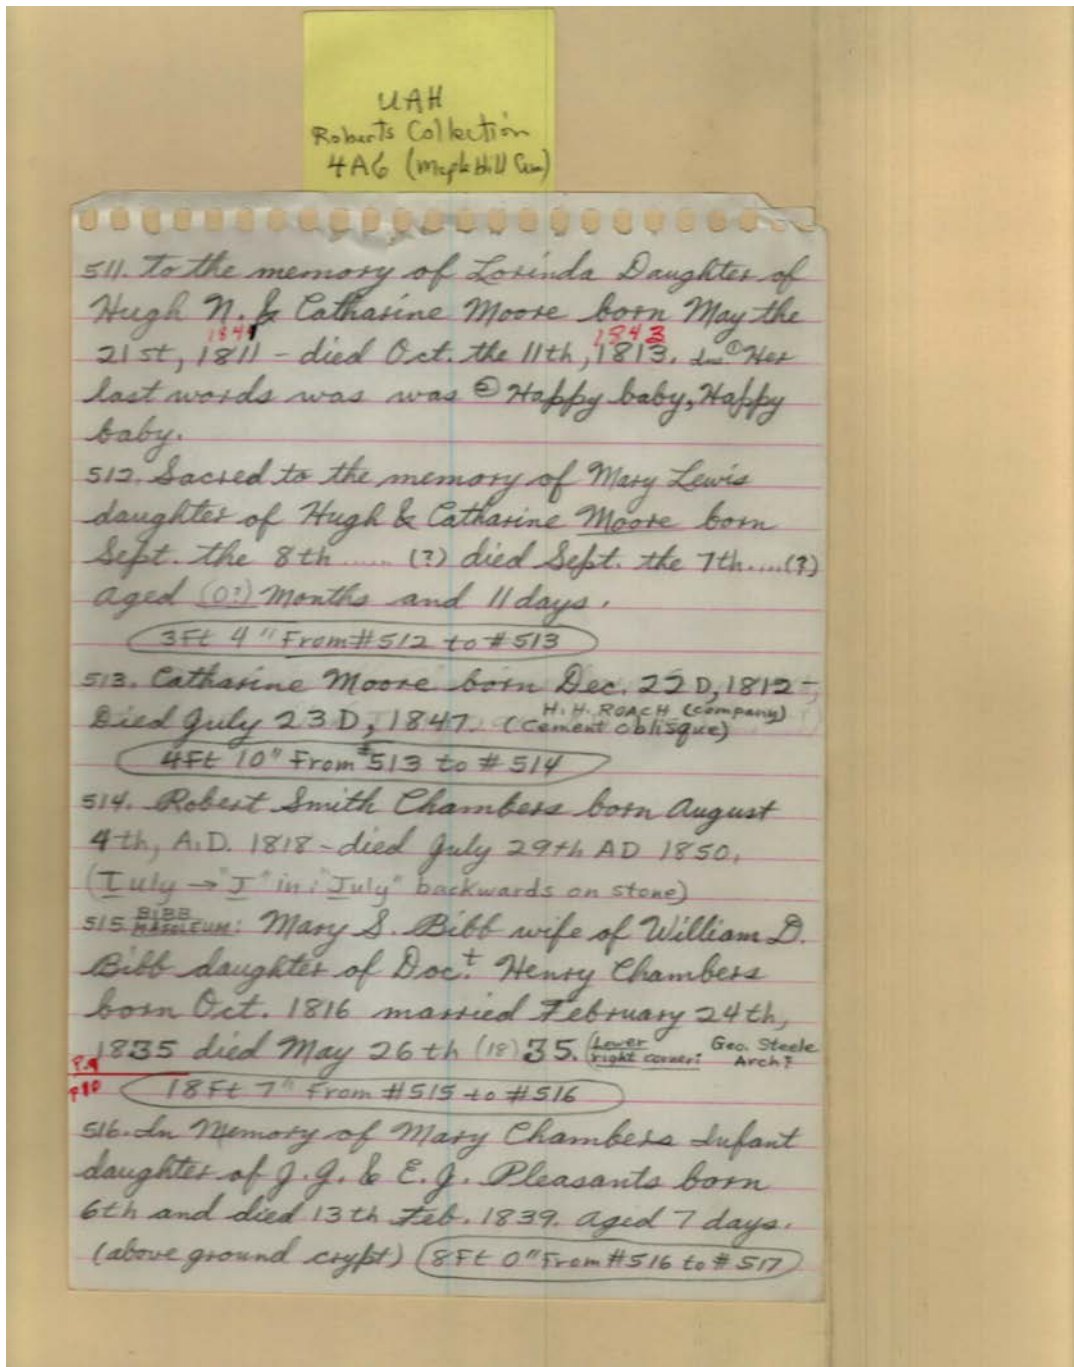 UAH
Roberts Collection
4A6 (Maple Hill Cem)
511. To the memory of Lorinda Daughter of
Hugh N. & Catharine Moore born May the
1841 1843
21st, 1811 - died Oct. the 11th, 1813. ① Her
last words was was ② Happy baby, Happy
baby.
512. Sacred to the memory of Mary Lewis
daughter of Hugh & Catharine Moore born
Sept. the 8th ..... (?) died Sept. the 7th....(?)
aged (0?) Months and 11 days.
3Ft 4" From #512 to #513
513. Catharine Moore born Dec. 22D, 1812-
H.H. ROACH (company)
Died July 23D, 1847. (Cement oblisque)
4Ft 10" From #513 to #514
514. Robert Smith Chambers born August
4th, A.D. 1818 - died July 29th AD 1850.
(July → "J" in: "July" backwards on stone)
BIBB
515 MASOLEUM: Mary S. Bibb wife of William D.
Bibb daughter of Doct. Henry Chambers
born Oct. 1816 married February 24th,
1835 died May 26th (18)35. (Lower right corner: Geo. Steele Arch?
P.9
P10
18Ft 7" From #515 to #516
516. In Memory of Mary Chambers Infant
daughter of J.J. & E.J. Pleasants born
6th and died 13th Feb. 1839. aged 7 days.
(above ground crypt) 8Ft 0" From #516 to #517